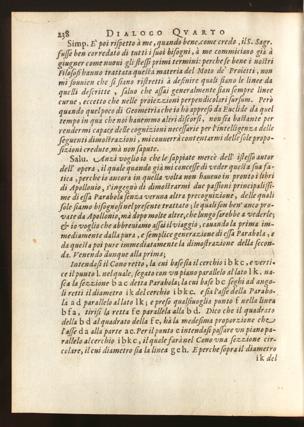 238 DIALOGO QVARTO
Simp. E poi rispetto à me, quando bene, come credo, il S. Sagr.
fusse ben corredato di tutti i suoi bisogni, à me cominciano già à
giugner come nuoui gli stessi primi termini: perche se bene i nostri
Filosofi hanno trattata questa materia del Moto de' Proietti, non
mi souuien che si siano ristretti à definire quali siano le linee da
quelli descritte, saluo che assai generalmente sian sempre linee
curue, eccetto che nelle proiezzioni perpendicolari sursum. Però
quando quel poco di Geometria che io hò appreso da Euclide da quel
tempo in quà che noi hauemmo altri discorsi, non sia bastante per
rendermi capace delle cognizioni necessarie per l'intelligenza delle
seguenti dimostrazioni, mi conuerrà contentarmi delle sole propo-
sizioni credute, mà non sapute.
Salu. Anzi voglio io che le sappiate mercè dell' istesso autor
dell' opera, il quale quando già mi concesse di veder questa sua fa-
tica, perche io ancora in quella volta non haueuo in pronto i libri
di Apollonio, s'ingegnò di dimostrarmi due passioni principalissi-
me di essa Parabola senza veruna altra precognizione, delle quali
sole siamo bisognosi nel presente trattato; le quali son ben' anco pro-
uate da Apollonio, mà dopo molte altre, che lungo sarebbe a vederle;
& io voglio che abbreuiamo assai il viaggio, cauando la prima im-
mediatamente dalla pura, e semplice generazione di essa Parabola, e
da questa poi pure immediatamente la dimostrazione della secon-
da. Venendo dunque alla prima;
Intendasi il Cono retto, la cui base sia il cerchio ibkc, e verti-
ce il punto l. nel quale, segato con vn piano parallelo al lato lk. na-
sca la sezzione bac detta Parabola, la cui base bc seghi ad ango-
li retti il diametro ik del cerchio ibkc. e sia l'asse della Parabo-
la ad parallelo al lato lk; e preso qualsiuoglia punto f nella linea
bfa, tirisi la retta fe parallela alla bd. Dico che il quadrato
della bd al quadrato della fe, hà la medesima proporzione che
l'asse da alla parte ae. Per il punto e intendasi passare vn piano pa-
rallelo al cerchio ibkc, il quale farà nel Cono vna sezzione cir-
colare, il cui diametro sia la linea geh. E perche sopra il diametro
ik del